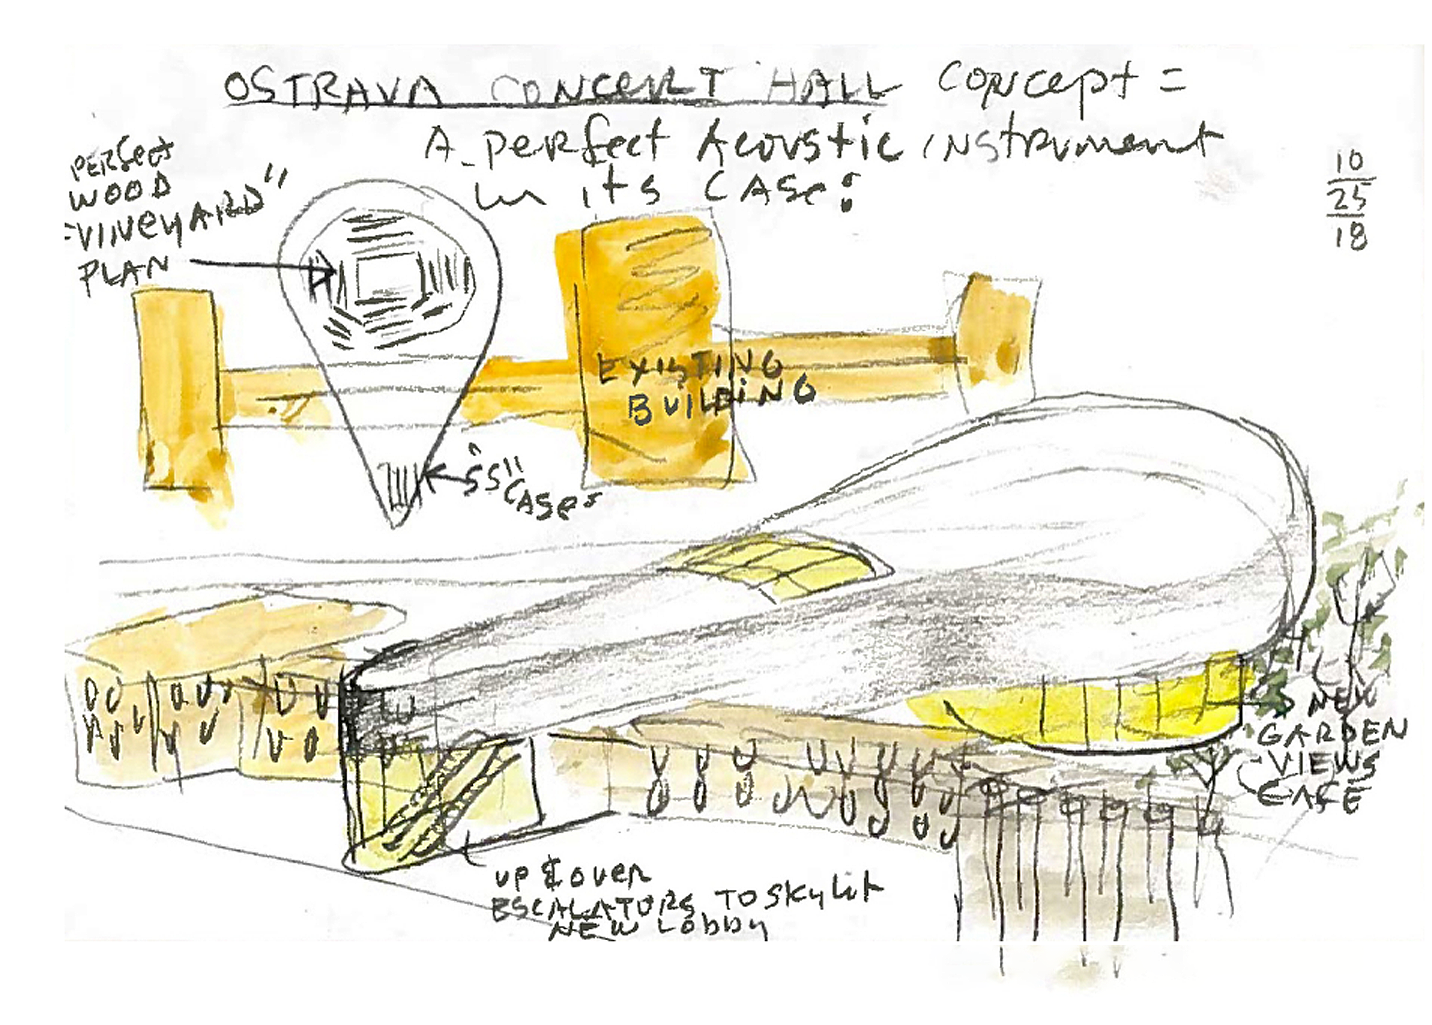 OSTRAVA CONCERT HALL Concept =
A perfect Acoustic instrument
in its CASE:
10
25
18
PERFect
WOOD
"VINEYARD"
PLAN
EXISTING
BUILDING
"SS"
CASE
NEW
GARDEN
VIEWS
CAFE
UP & OVER
ESCALATORS TO SKYLIT
NEW LOBBY